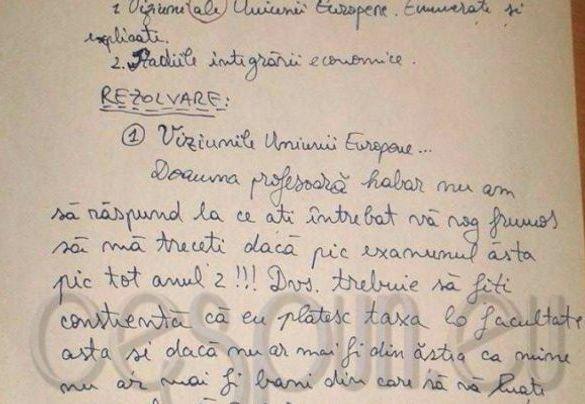 1. Viziuni ale Uniunii Europene. Enumerati și
explicati.
2. Stadiile integrării economice.
REZOLVARE:
① Viziunile Uniunii Europene...
Doamna profesoară habar nu am
să răspund la ce ati întrebat vă rog frumos
să mă treceti dacă pic examunul ăsta
pic tot anul 2 !!! Dvs. trebuie să fiti
constientă că eu plătesc taxa la facultate
asta si dacă nu ar mai fi din ăstia ca mine
nu ar mai fi bani din care să vă luati
cespun.eu